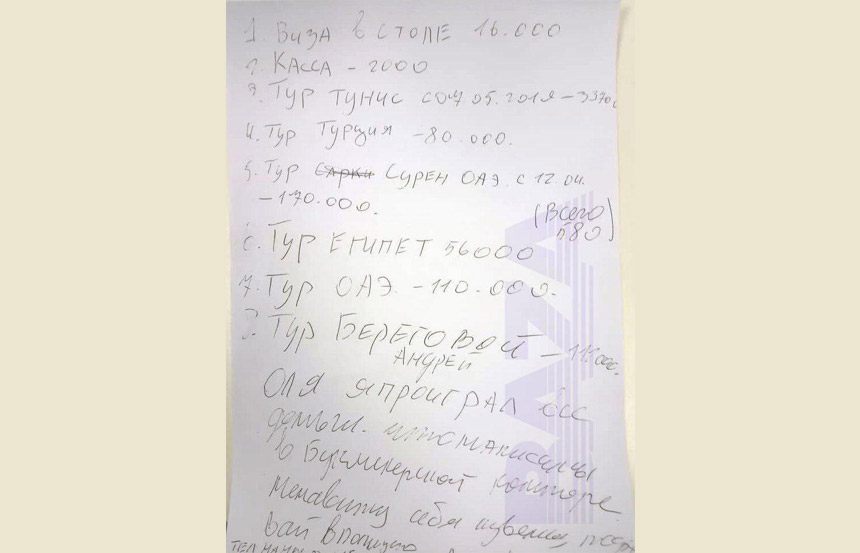 1 Виза в столе 16.000
2. Касса - 2000
3. Тур Тунис 05.2019 -
4. Тур Турция - 80.000.
5. Тур Сурен ОАЭ. с 12.04.
- 170.000.
(Всего
580)
6. Тур Египет 56000
7. Тур ОАЭ. - 110.000.
Тур Береговой
Андрей
Оля я проиграл все
деньги.
в Букмекерской конторе
Ненавижу себя извени,
BAZA